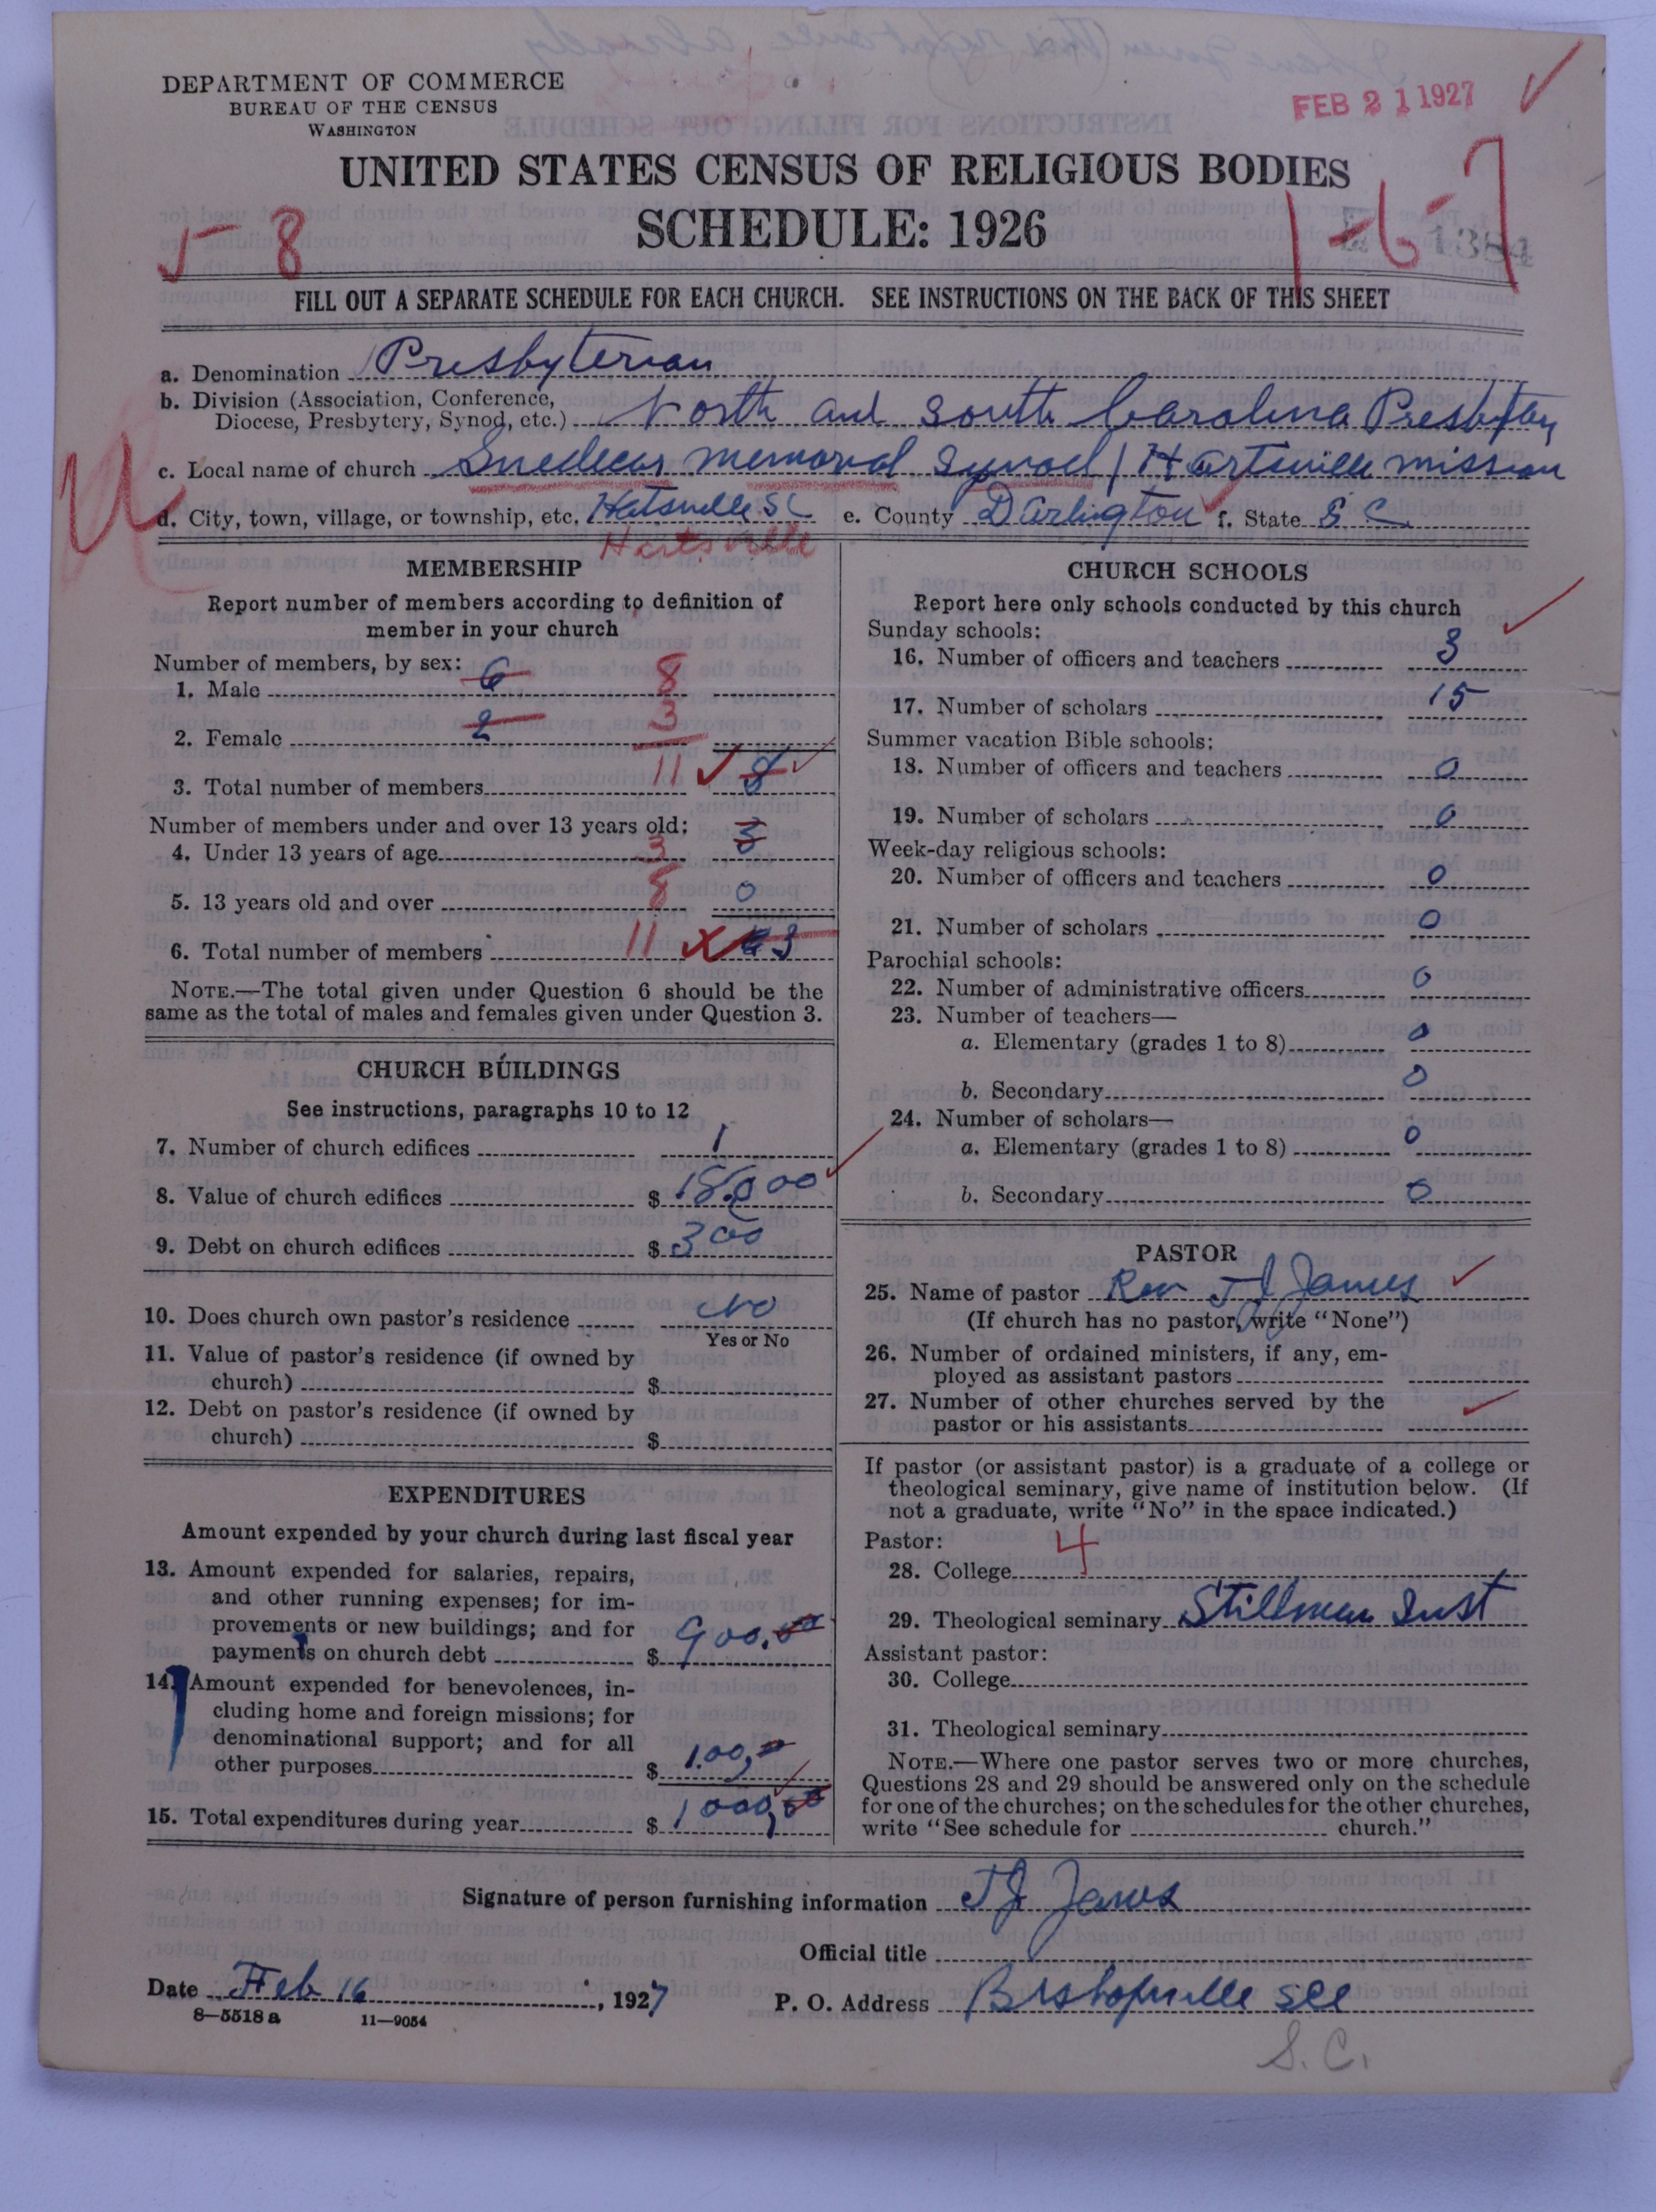 DEPARTMENT OF COMMERCE
BUREAU OF THE CENSUS
WASHINGTON
FEB 21 1927
UNITED STATES CENSUS OF RELIGIOUS BODIES
SCHEDULE: 1926
5-8
1-6-7
1384
FILL OUT A SEPARATE SCHEDULE FOR EACH CHURCH. SEE INSTRUCTIONS ON THE BACK OF THIS SHEET
a. Denomination Presbyterian
b. Division (Association, Conference,
Diocese, Presbytery, Synod, etc.) North and South Carolina Presbytery
c. Local name of church Snedecor memorial Synod / Hartsville mission
d. City, town, village, or township, etc. Hatsville SC e. County Darlington f. State S C
Hartsville
MEMBERSHIP
Report number of members according to definition of
member in your church
Number of members, by sex:
1. Male 6 8
2. Female 2 3
3. Total number of members 11 8
Number of members under and over 13 years old:
4. Under 13 years of age 3 3
5. 13 years old and over 8 0
6. Total number of members 11 3
NOTE.—The total given under Question 6 should be the
same as the total of males and females given under Question 3.
CHURCH BUILDINGS
See instructions, paragraphs 10 to 12
7. Number of church edifices 1
8. Value of church edifices $
9. Debt on church edifices $ 300
10. Does church own pastor's residence No
Yes or No
11. Value of pastor's residence (if owned by
church) $
12. Debt on pastor's residence (if owned by
church) $
EXPENDITURES
Amount expended by your church during last fiscal year
13. Amount expended for salaries, repairs,
and other running expenses; for im-
provements or new buildings; and for
payments on church debt $ 900.00
14. Amount expended for benevolences, in-
cluding home and foreign missions; for
denominational support; and for all
other purposes $ 100,00
15. Total expenditures during year $ 1000,00
CHURCH SCHOOLS
Report here only schools conducted by this church
Sunday schools:
16. Number of officers and teachers 3
17. Number of scholars 15
Summer vacation Bible schools:
18. Number of officers and teachers 0
19. Number of scholars 0
Week-day religious schools:
20. Number of officers and teachers 0
21. Number of scholars 0
Parochial schools:
22. Number of administrative officers 0
23. Number of teachers—
a. Elementary (grades 1 to 8) 0
b. Secondary 0
24. Number of scholars—
a. Elementary (grades 1 to 8) 0
b. Secondary 0
PASTOR
25. Name of pastor Rev J J James
(If church has no pastor, write "None")
26. Number of ordained ministers, if any, em-
ployed as assistant pastors
27. Number of other churches served by the
pastor or his assistants
If pastor (or assistant pastor) is a graduate of a college or
theological seminary, give name of institution below. (If
not a graduate, write "No" in the space indicated.)
Pastor: 4
28. College
29. Theological seminary Stillman Inst
Assistant pastor:
30. College
31. Theological seminary
NOTE.—Where one pastor serves two or more churches,
Questions 28 and 29 should be answered only on the schedule
for one of the churches; on the schedules for the other churches,
write "See schedule for church."
Signature of person furnishing information J J James
Official title
Date Feb 16, 1927 P. O. Address Bishopville
8-5518 a 11-9054
S.C.